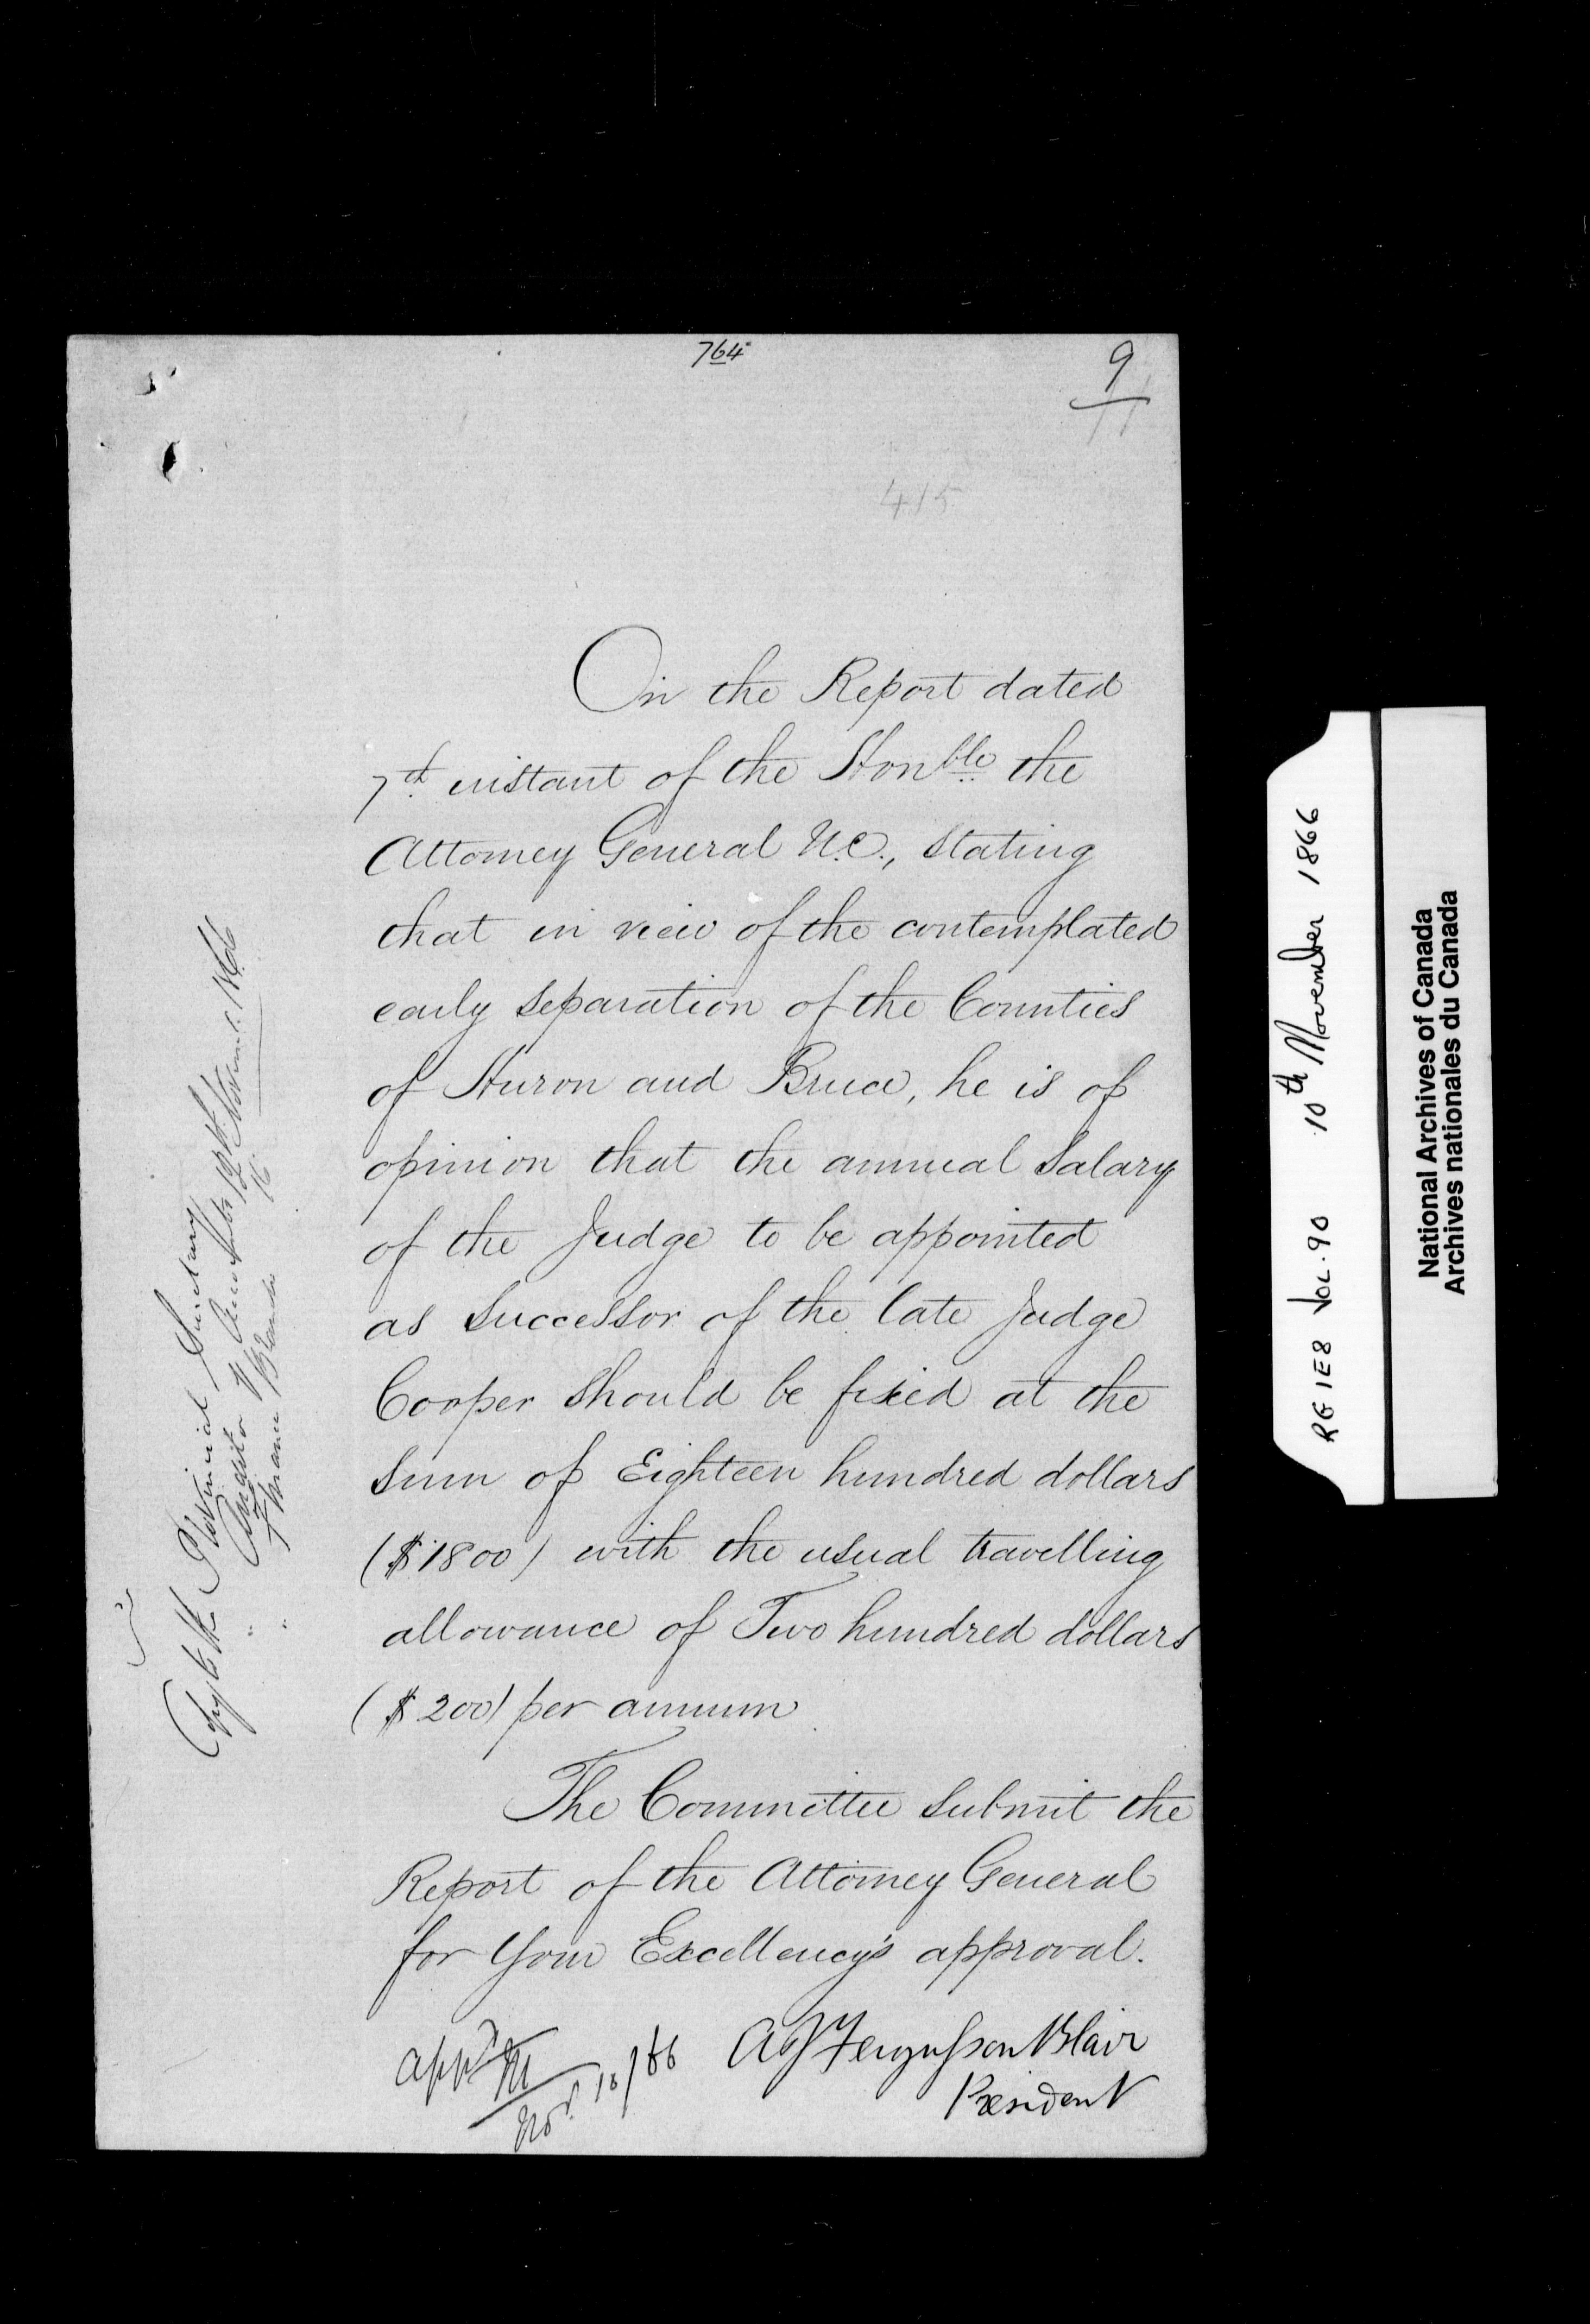 764
9
11
415
On the Report dated
7th instant of the Honble the
Attorney General U.C., stating
that in view of the contemplated
early separation of the Counties
of Huron and Bruce, he is of
opinion that the annual salary
of the Judge to be appointed
as successor of the late Judge
Cooper should be fixed at the
sum of Eighteen hundred dollars
($1800) with the usual travelling
allowance of Two hundred dollars
($200) per annum
The Committee submit the
Report of the Attorney General
for Your Excellency's approval.
Appd M
Nov. 10/66
A J Fergusson Blair
President
Copy to the Provincial Secretary
" Auditor
" Finance
RG 1E8 VOL. 90 10th November 1866
National Archives of Canada
Archives nationales du Canada